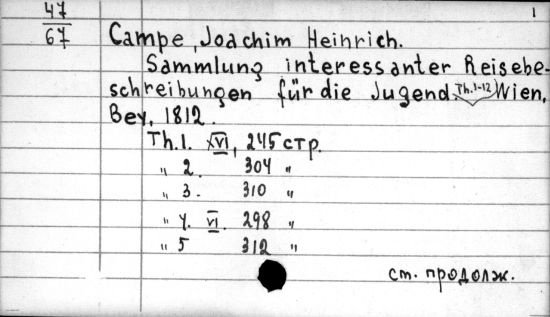 47
67
1
Campe, Joachim Heinrich.
Sammlung interessanter Reisebe-
schreibungen für die Jugend. Th.1-12 Wien,
Bey, 1812.
Th.1. XVI, 245 стр.
" 2. 304 "
" 3. 310 "
" 4. VI. 298 "
" 5 312 "
ст. продолж.